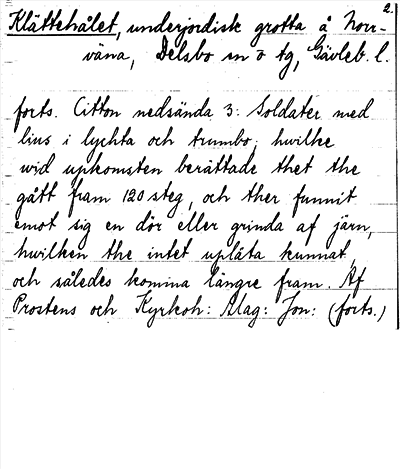 2.
Klättehålet, underjordisk grotta å Norr-
väna, Delsbo sn o tg, Gävleb. l.
forts. Citton nedsända 3: Soldater med
lius i lychta och trumbo: hwilke
wid upkomsten berättade thet the
gått fram 120 steg, och ther funnit
emot sig en dör eller grinda af järn,
hwilken the intet uplåta kunnat,
och således komma längre fram. Af
Prostens och Kyrkoh: Mag: Jon: (forts.)